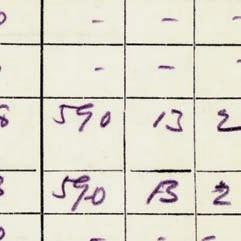 - - -
- - -
590 13 2
590 13 2